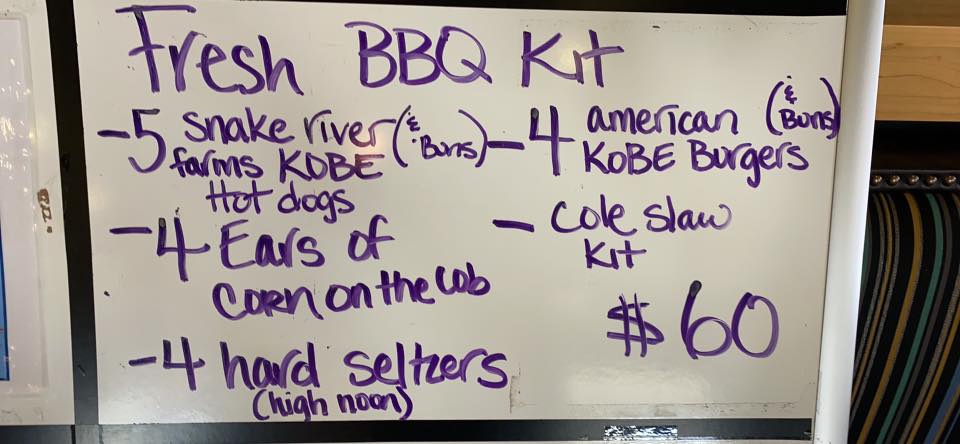 Fresh BBQ Kit
-5 snake river (& Buns)
farms KOBE
Hot dogs
-4 american (& Buns)
KOBE Burgers
-4 Ears of
corn on the cob
- Cole slaw
Kit
-4 hard seltzers
(high noon)
$60